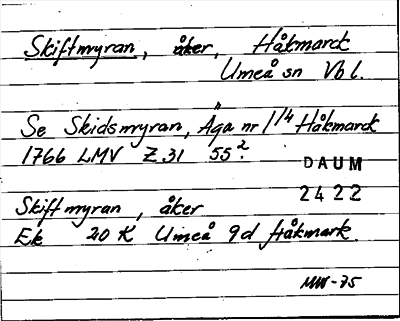 Skiftmyran, åker, Håkmarck
Umeå sn Vbl.
Se Skidsmyran, Äga nr 1 1/4 Håkmarck
1766 LMV Z 31 55².
DAUM
2422
Skiftmyran, åker
Ek 20 K Umeå 9d Håkmark.
MW-75